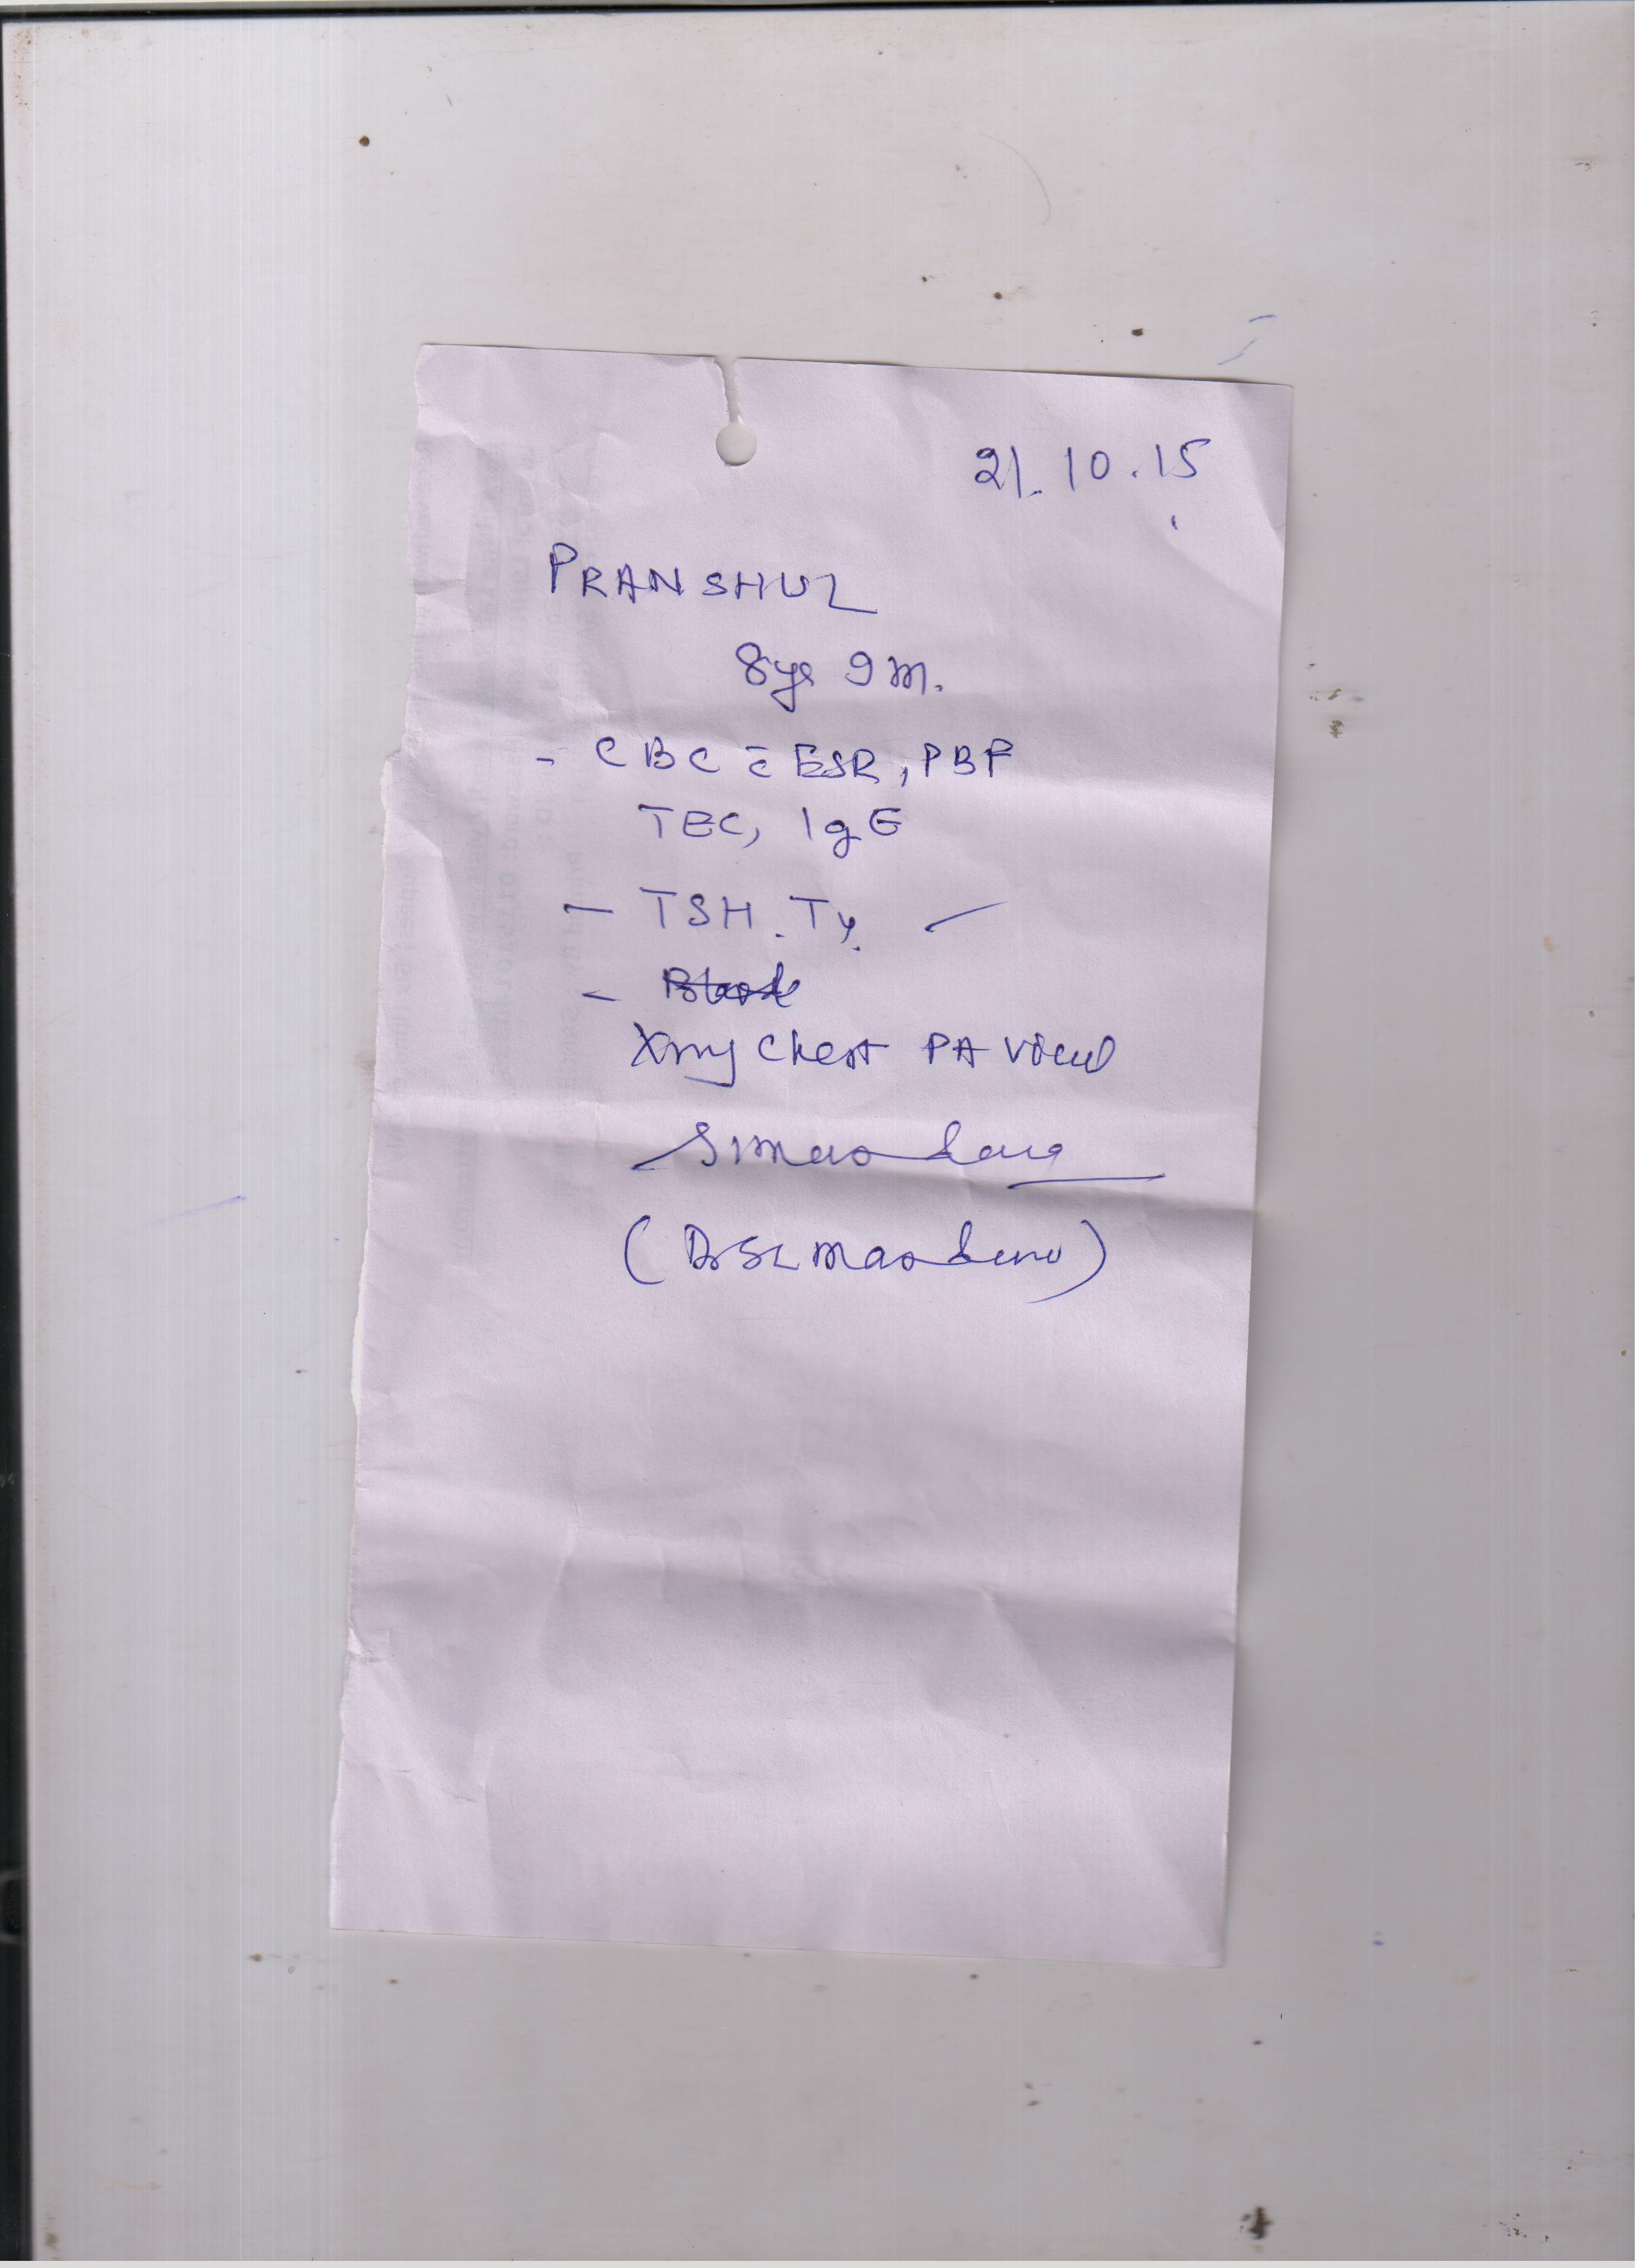 21.10.15
PRANSHUL
8yr 9m.
- CBC c̄ ESR, PBF
TEC, IgE
- TSH. T4.
-
Xray Chest PA View
(Dr SL